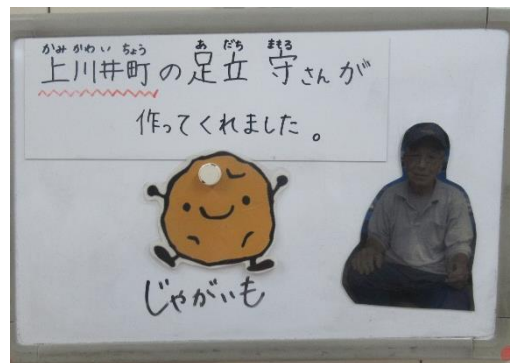 かみかわいちょう あだち まもる
上川井町の足立 守さんが
作ってくれました。
じゃがいも